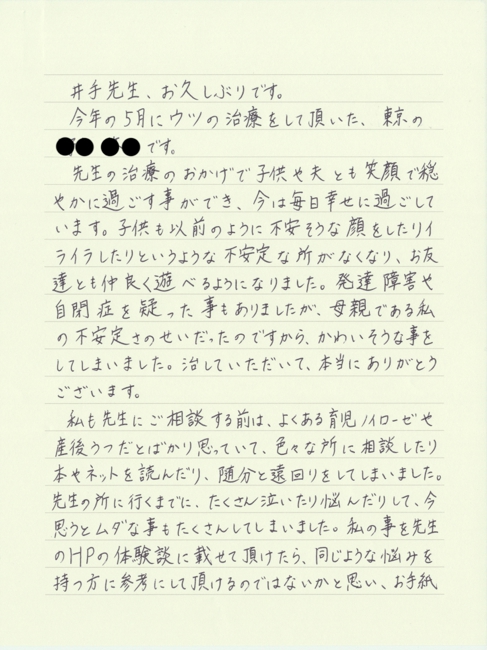 井手先生、お久しぶりです。
今年の5月にウツの治療をして頂いた、東京の
●● ●●です。
先生の治療のおかげで子供や夫とも笑顔で穏
やかに過ごす事ができ、今は毎日幸せに過ごして
います。子供も以前のように不安そうな顔をしたりイ
ライラしたりというような不安定な所がなくなり、お友
達とも仲良く遊べるようになりました。発達障害や
自閉症を疑った事もありましたが、母親である私
の不安定さのせいだったのですから、かわいそうな事を
してしまいました。治していただいて、本当にありがとう
ございます。
私も先生にご相談する前は、よくある育児ノイローゼや
産後うつだとばかり思っていて、色々な所に相談したり
本やネットを読んだり、随分と遠回りをしてしまいました。
先生の所に行くまでに、たくさん泣いたり悩んだりして、今
思うとムダな事もたくさんしてしまいました。私の事を先生
のHPの体験談に載せて頂けたら、同じような悩みを
持つ方に参考にして頂けるのではないかと思い、お手紙